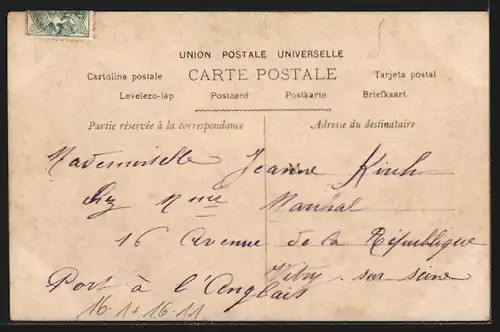 UNION POSTALE UNIVERSELLE
Cartolina postale CARTE POSTALE Tarjeta postal
Levelezo-lap Postcard Postkarte Briefkaart
Partie réservée à la correspondance Adresse du destinataire
Mademoiselle Jeanne
chez Mme
16 Avenue de la République
Vitry sur seine
Port à l'Anglais
16.1+16.11